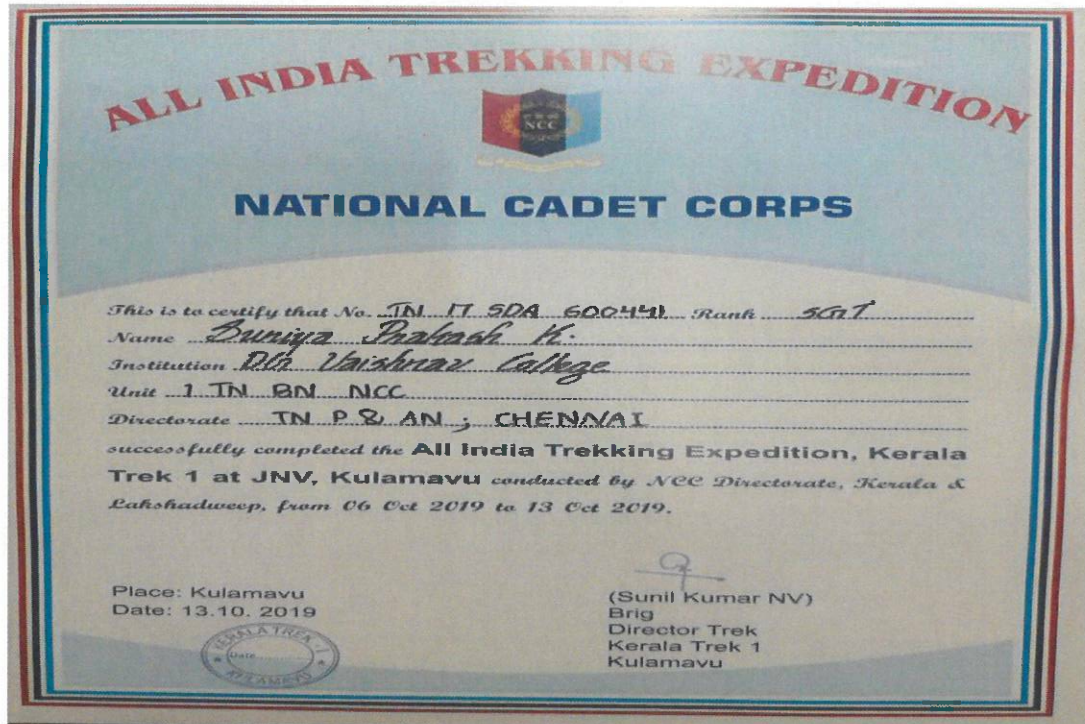 ALL INDIA TREKKING EXPEDITION
NCC
NATIONAL CADET CORPS
This is to certify that No. TN 17 SDA 600441 Rank SGT
Name Suniya Prakash K.
Institution DG Vaishnav College
Unit 1 TN BN NCC
Directorate TN P & AN ; CHENNAI
successfully completed the All India Trekking Expedition, Kerala
Trek 1 at JNV, Kulamavu conducted by NCC Directorate, Kerala &
Lakshadweep, from 06 Oct 2019 to 13 Oct 2019.
Place: Kulamavu
Date: 13.10. 2019
(Sunil Kumar NV)
Brig
Director Trek
Kerala Trek 1
Kulamavu
KERALA TREK - I
Date
KULAMAVU